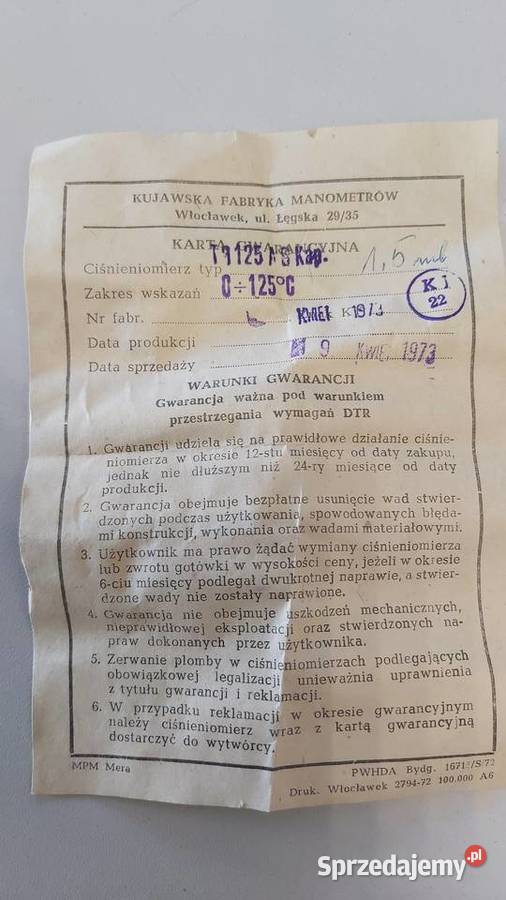 KUJAWSKA FABRYKA MANOMETRÓW
Włocławek, ul. Łęgska 29/35
KARTA GWARANCYJNA
Ciśnieniomierz typ Kap. 1,5 mb
Zakres wskazań 0÷125°C
KJ
22
Nr fabr. KWIE 1973
Data produkcji 9 KWIE. 1973
Data sprzedaży
WARUNKI GWARANCJI
Gwarancja ważna pod warunkiem
przestrzegania wymagań DTR
1. Gwarancji udziela się na prawidłowe działanie ciśnie-
niomierza w okresie 12-stu miesięcy od daty zakupu,
jednak nie dłuższym niż 24-ry miesiące od daty
produkcji.
2. Gwarancja obejmuje bezpłatne usunięcie wad stwier-
dzonych podczas użytkowania, spowodowanych błęda-
mi konstrukcji, wykonania oraz wadami materiałowymi.
3. Użytkownik ma prawo żądać wymiany ciśnieniomierza
lub zwrotu gotówki w wysokości ceny, jeżeli w okresie
6-ciu miesięcy podlegał dwukrotnej naprawie, a stwier-
dzone wady nie zostały naprawione.
4. Gwarancja nie obejmuje uszkodzeń mechanicznych,
nieprawidłowej eksploatacji oraz stwierdzonych na-
praw dokonanych przez użytkownika.
5. Zerwanie plomby w ciśnieniomierzach podlegających
obowiązkowej legalizacji unieważnia uprawnienia
z tytułu gwarancji i reklamacji.
6. W przypadku reklamacji w okresie gwarancyjnym
należy ciśnieniomierz wraz z kartą gwarancyjną
dostarczyć do wytwórcy.
MPM Mera
PWHDA Bydg.
Druk. Włocławek 2794-72 100.000 A6
Sprzedajemy.pl